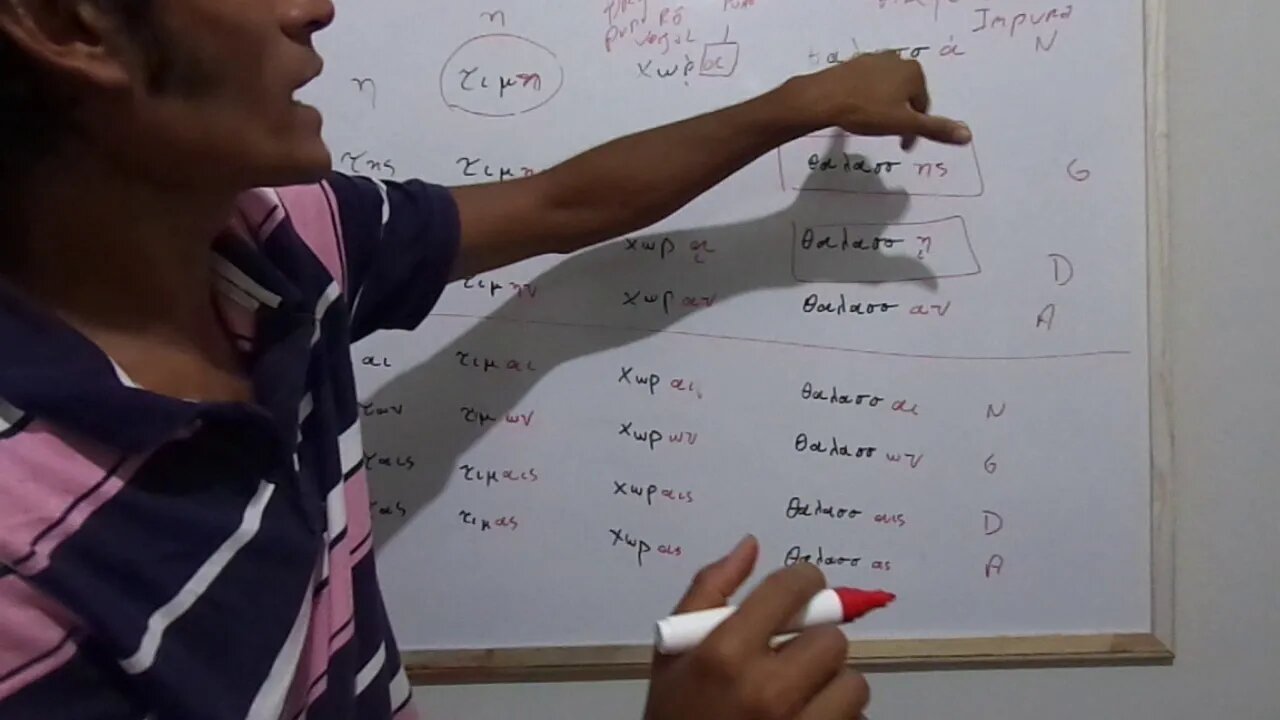 η Impura
η τιμη χωρ α N
της θαλασσ ης G
χωρ ᾳ θαλασσ ῃ D
τιμ ην χωρ αν θαλασσ αν A
αι τιμ αι χωρ αι θαλασσ αι N
των τιμ ων χωρ ων θαλασσ ων G
ταις τιμ αις χωρ αις θαλασσ αις D
τας τιμ ας χωρ ας θαλασσ ας A